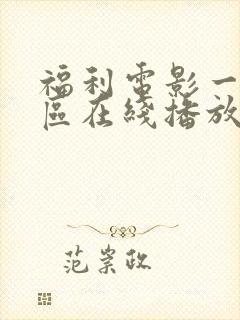 福利電影一
區在綫播放
范崇政